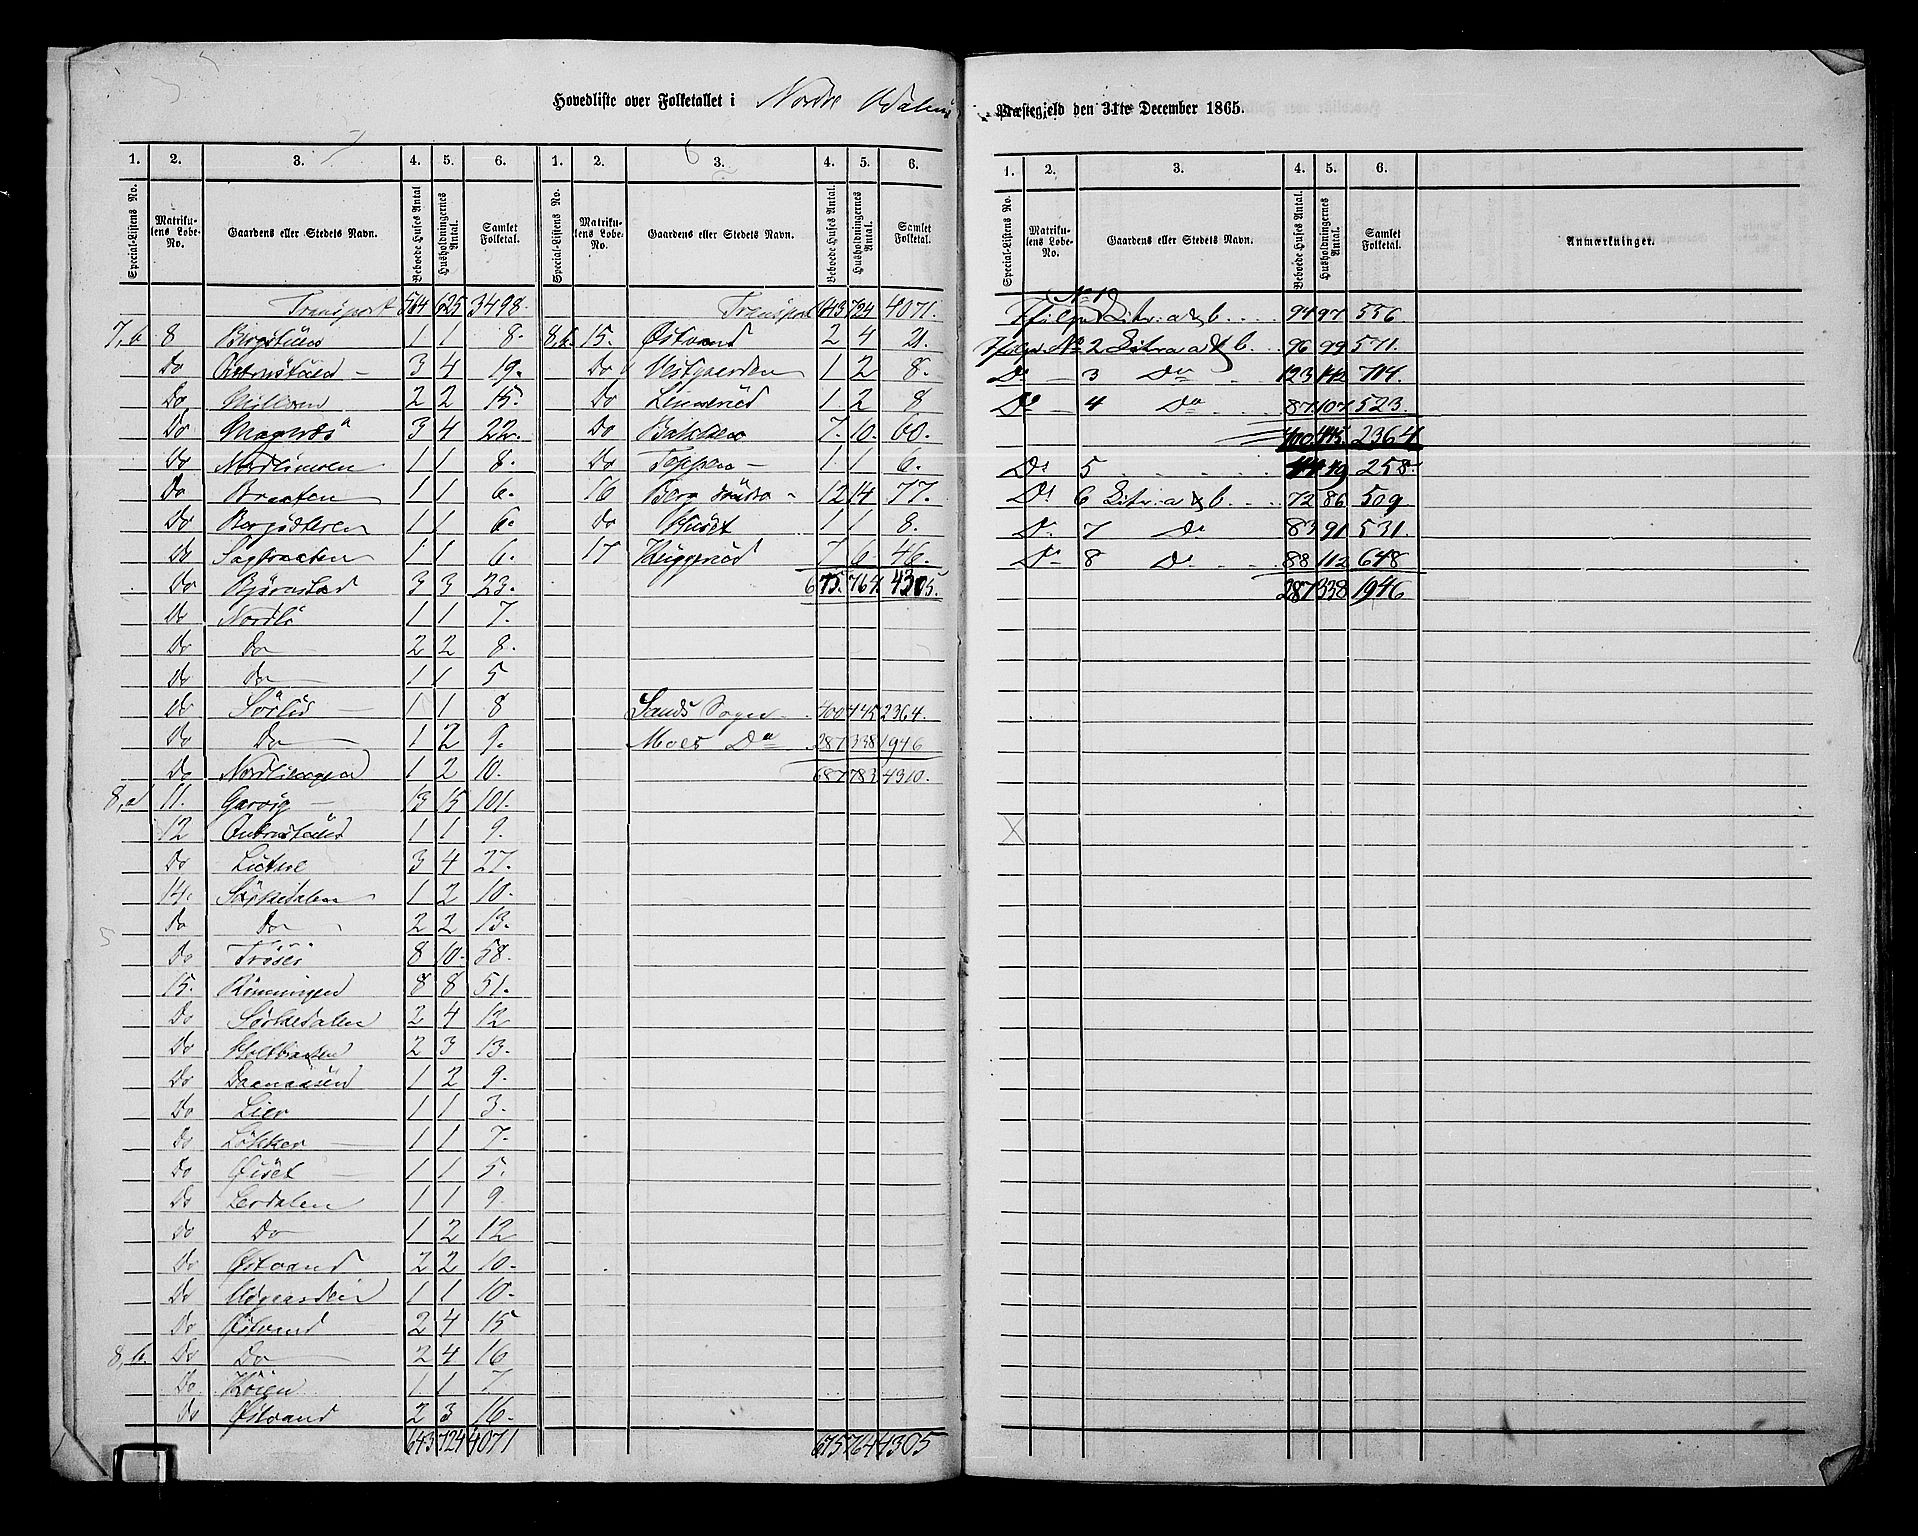 Hovedliste over Folketallet i Nordre Odalens
Præstegjeld den 31te December 1865.
1. 2. 3. 4. 5. 6. 1. 2. 3. 4. 5. 6.
Special-Listens No. Matrikulens Løbe-No. Gaardens eller Stedets Navn. Beboede Huses Antal Husholdningernes Antal. Samlet Folketal. Special-Listens No. Matrikulens Løbe-No. Gaardens eller Stedets Navn. Beboede Huses Antal. Husholdningernes Antal. Samlet Folketal.
Transport 564 625 3498.
7,b 8 1 1 8.
Do 3 4 19.
Do 2 2 15.
Do Magnæs 3 4 22.
Do Nordlimoen 1 1 8.
Do Braaten 1 1 6.
Do 1 1 6.
Do Sagbraaten 1 1 6.
Do Bjørnstad 3 3 23.
Do Nordli 1 1 7.
Do Do 2 2 8.
Do Do 1 1 5
Do Sørlid 1 1 8
Do Do 1 2 9.
Do Nordlihagen 1 2 10.
8,a 11. Garvig 13 15 101.
12 1 1 9.
Do 3 4 27.
14. Sørkedalen 1 2 10.
Do Do 2 2 13.
Do Trøsei 8 10. 58.
15. Rønningen 8 8 51.
Do Sørkedalen 2 4 12
Do Holtbraaten 2 3 13.
Do 1 2 9.
Do Lier 1 1 3.
Do Løkker 1 1 7.
Do Øiset 1 1 5.
Do Lerdalen 1 1 9.
Do Do 1 2 12
Do Østvand 2 2 10.
Do 1 1 10.
Do Østvand 2 4 15
8,b. Do Do 2 4 16
Do Høien 1 1 7
Do Østvand 2 3 16.
643 724 4071
Transport 643 724 4071.
8,b. 15. Østvand 2 4 21.
Do Vestgaarden 1 2 8.
Do Linnerud 1 2 8
Do Bakken 7. 10. 60.
Do Toppen 1 1 6.
16 Berg søndre 12 14 77.
Do Huset 1 1 8.
17 Huggenæs 7 6 46.
675. 764. 4305.
Sands Sogn 400 445 2364.
Moes Do 287 338 1946
687 783 4310.
675 764 4305
1. 2. 3. 4. 5. 6.
Special-Listens No. Matrikulens Løbe-No. Gaardens eller Stedets Navn. Beboede Huses Antal. Husholdningernes Antal. Samlet Folketal. Anmærkninger.
Ifølge No 1 Litr. a & b. 94 97 556
Ifølge No 2 Litra a & b. 96 99 571.
Do 3 Do 123 142 714.
Do 4 Do 87 107 523.
400 445 2364
Do 5 44 49 258.
Do 6 Litr. a & b. 72 86 509
Do 7 Do 83 91 531.
Do 8 Do 88 112 648
287 338 1946